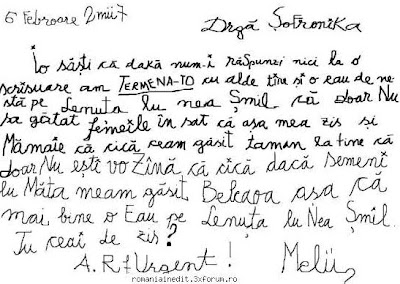 6 Febroare 2mii7
Drgă Șofronika
Io săști că dakă num-i răspunzi nici la o
scrisuare am TERMENA-TO cu alde tine și o eau de ne-
stă pe Lenuța lu nea Șmil că doar Nu
sa gătat femeile în sat că așa mea zis și
Mămaie că cică ceam găsit taman la tine că
doar Nu ești vo Zînă că cică dacă sement
lu Măta meam găsit Beleaoa așa că
mai bine o Eau pe Lenuța lu Nea Șmil.
Tu ceai de zis?
A.R.Urgent! Melii,
romaniainedit.3xforum.ro